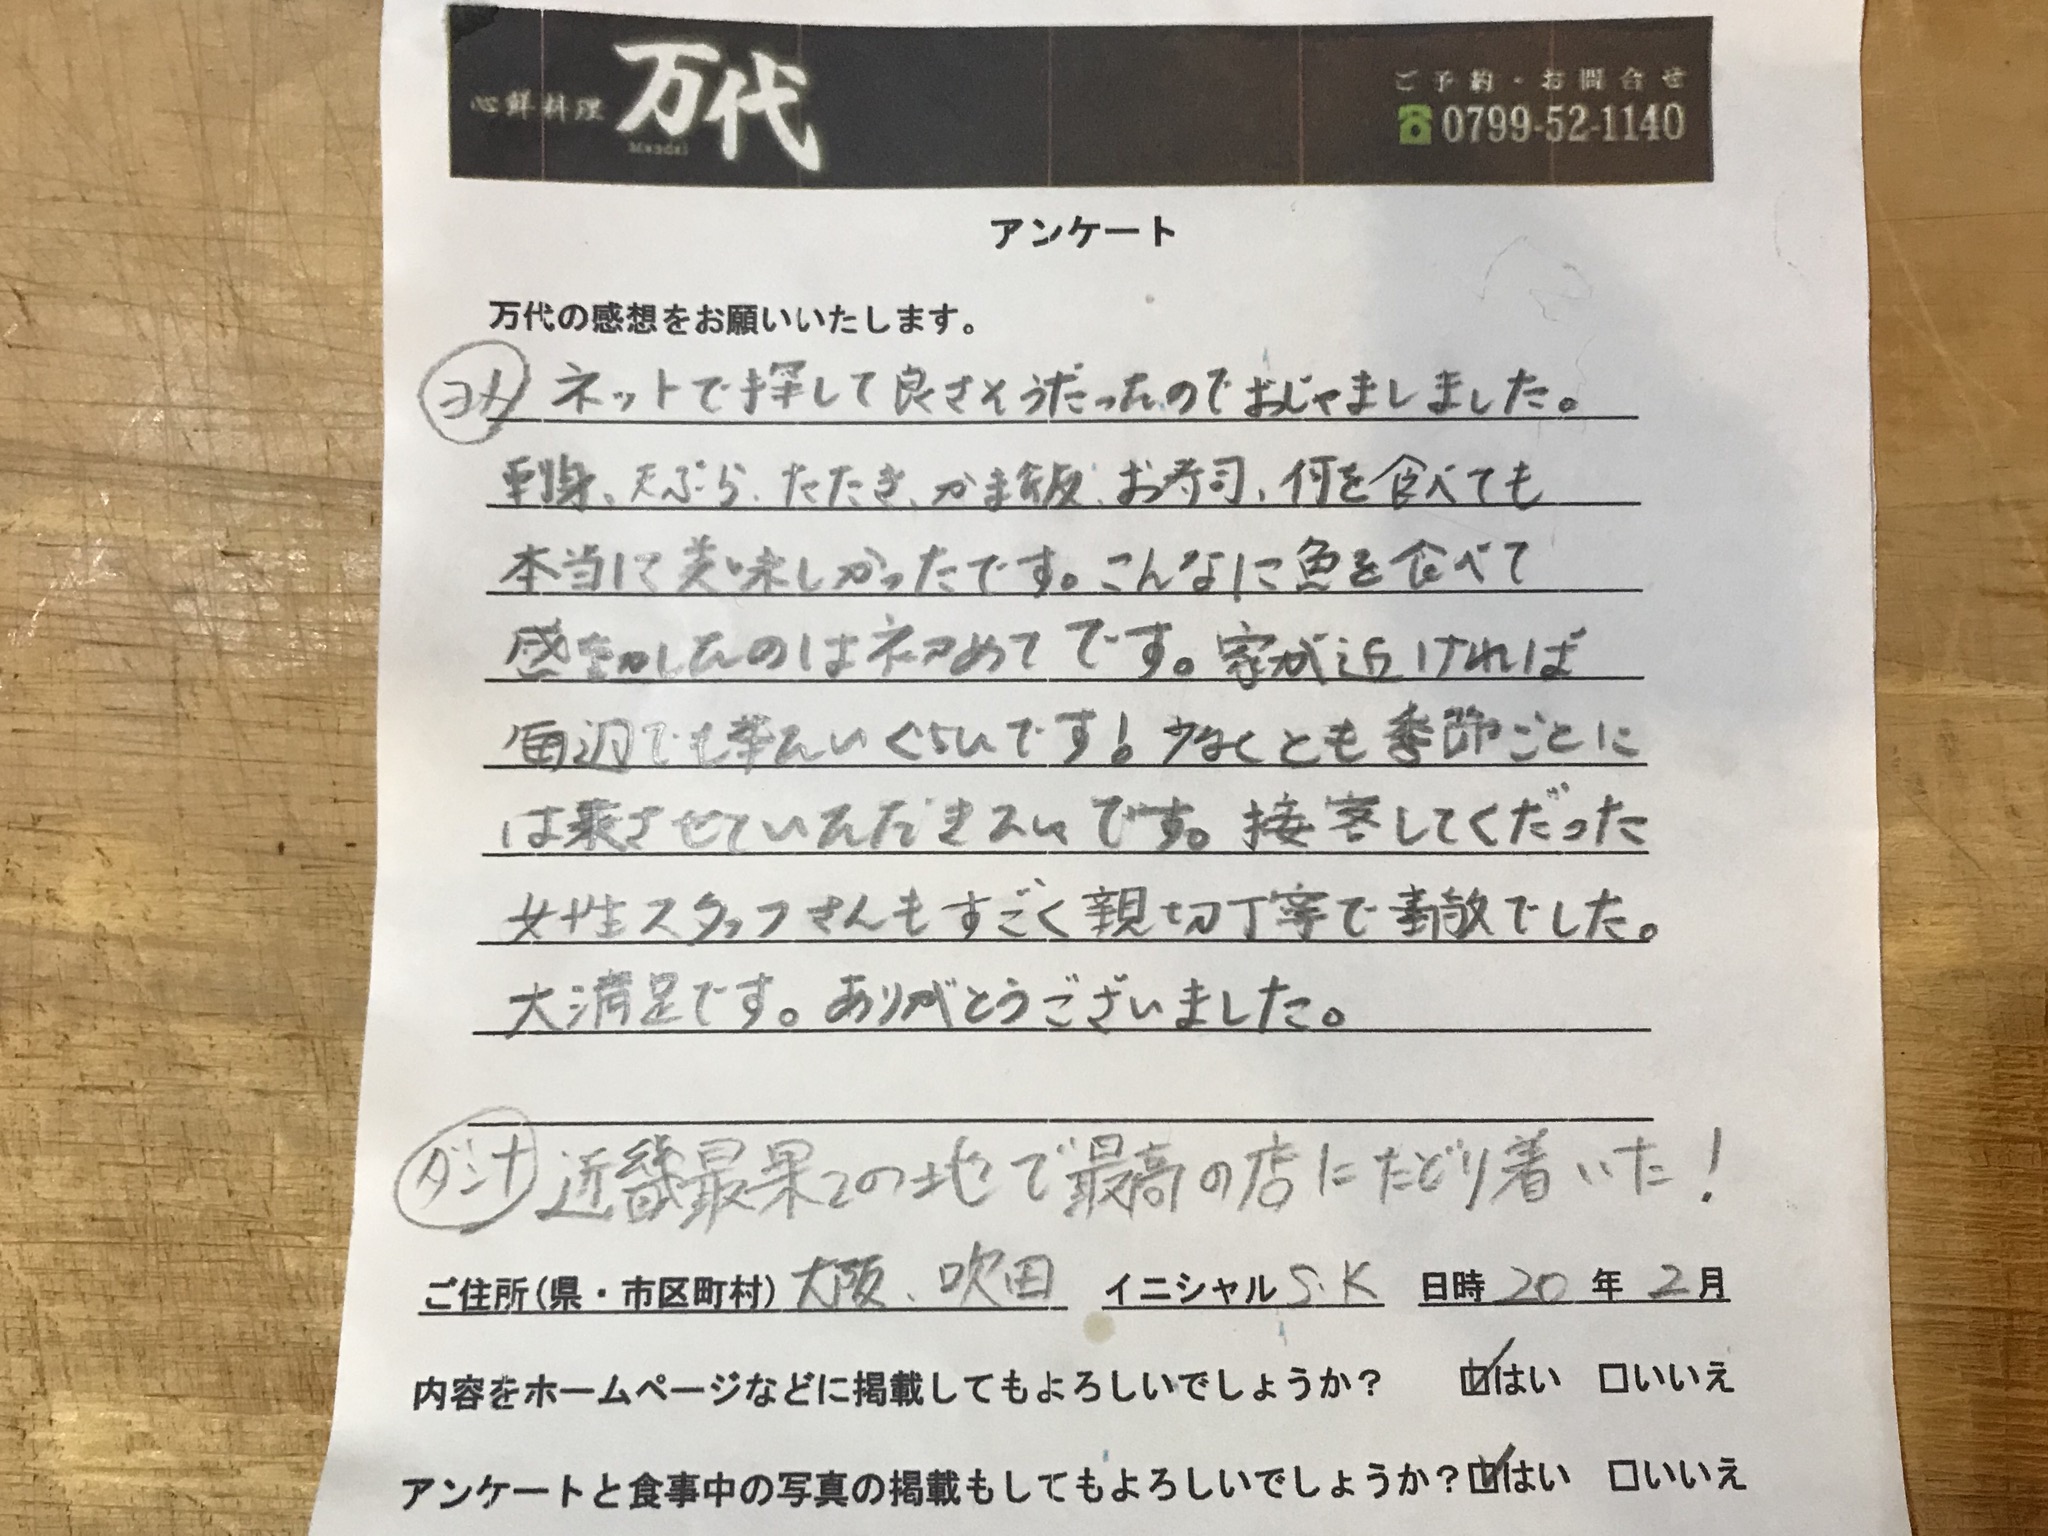 心鮮料理 万代
Mandai
ご予約・お問合せ
☎0799-52-1140
アンケート
万代の感想をお願いいたします。
ヨメ ネットで探して良さそうだったのでおじゃましました。
刺身、天ぷら、たたき、かま飯、お寿司、何を食べても
本当に美味しかったです。こんなに魚を食べて
感動したのは初めてです。家が近ければ
毎週でも来たいぐらいです!少なくとも季節ごとに
は来させていただきたいです。接客してくだった
女性スタッフさんもすごく親切丁寧で素敵でした。
大満足です。ありがとうございました。
ダンナ 近畿最果ての地で最高の店にたどり着いた!
ご住所(県・市区町村) 大阪、吹田 イニシャル S.K 日時 20 年 2 月
内容をホームページなどに掲載してもよろしいでしょうか? ☑はい □いいえ
アンケートと食事中の写真の掲載もしてもよろしいでしょうか?☑はい □いいえ